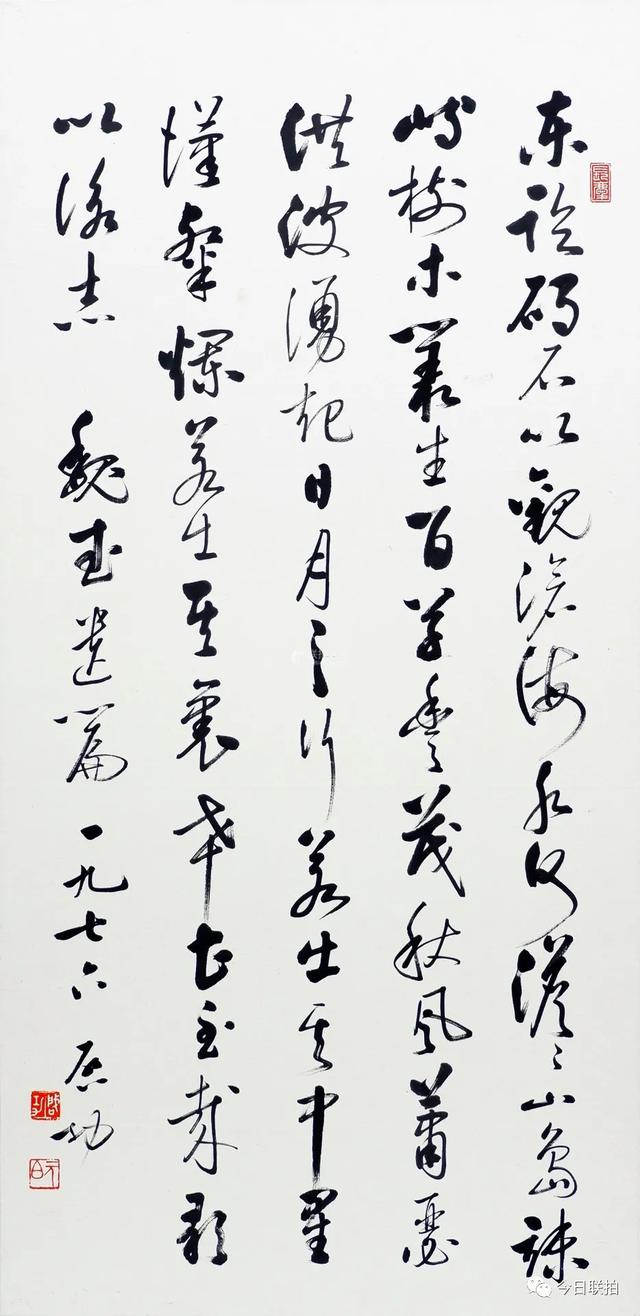 东临碣石以觀滄海水何澹々山島竦
峙樹木叢生百草豐茂秋風蕭瑟
洪波湧起日月之行若出其中星
漢粲爛若出其裏幸甚至哉歌
以詠志 魏武遺篇 一九七六 启功
啟功
元白
今日联拍